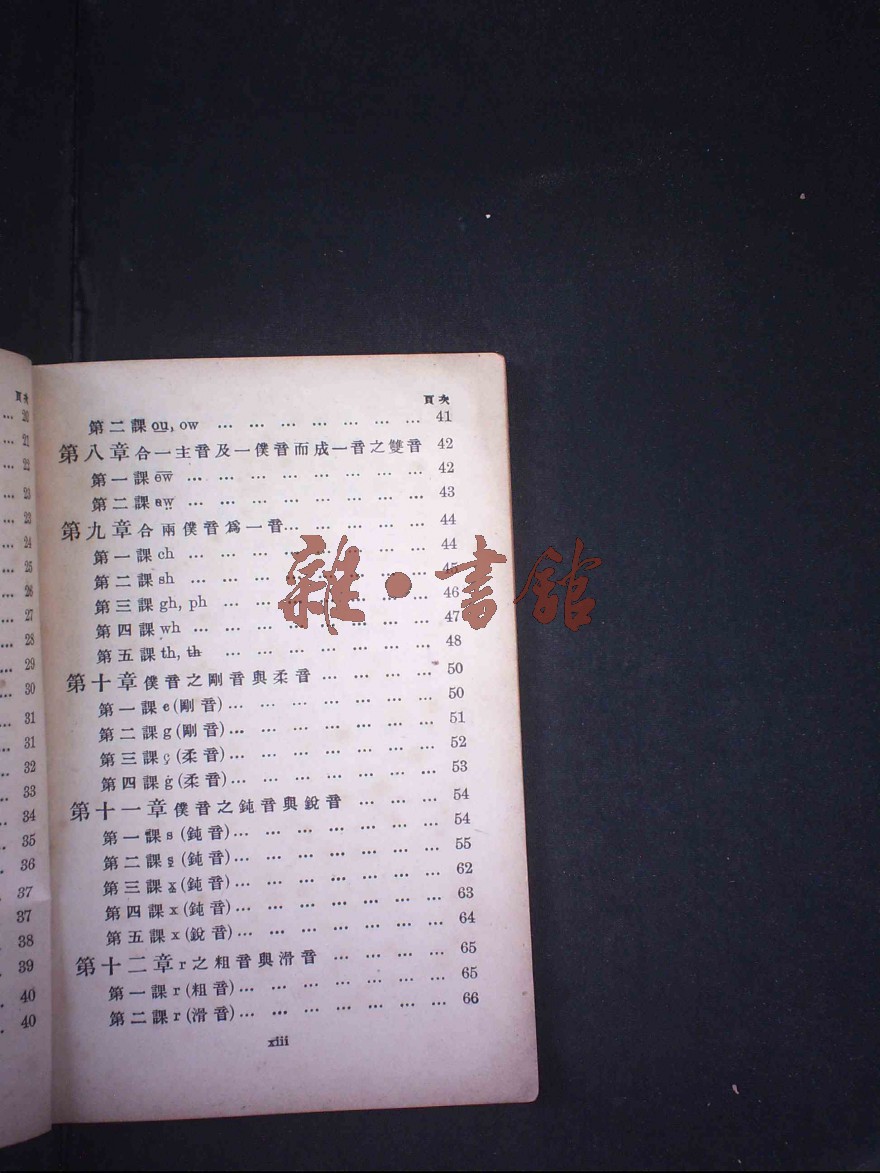 頁次
20
21
22
23
23
24
25
26
27
28
29
30
31
31
32
33
34
35
36
37
37
38
39
40
40
頁次
第二課 ou, ow … … … … … … … 41
第八章 合一主音及一僕音而成一音之雙音 42
第一課 ew … … … … … … … … 42
第二課 aw … … … … … … … … 43
第九章 合兩僕音爲一音… … … … … 44
第一課 ch … … … … … … … … 44
第二課 sh … … … … … … … … 45
第三課 gh, ph … … … … … … … 46
第四課 wh … … … … … … … … 47
第五課 th, th … … … … … … … 48
第十章 僕音之剛音與柔音 … … … … 50
第一課 c (剛音)… … … … … … … 50
第二課 g (剛音)… … … … … … … 51
第三課 ç (柔音)… … … … … … … 52
第四課 ġ (柔音)… … … … … … … 53
第十一章 僕音之鈍音與銳音 … … … 54
第一課 s (鈍音)… … … … … … … 54
第二課 s (鈍音)… … … … … … … 55
第三課 x (鈍音)… … … … … … … 62
第四課 x (鈍音)… … … … … … … 63
第五課 x (銳音)… … … … … … … 64
第十二章 r 之粗音與滑音 … … … … 65
第一課 r (粗音)… … … … … … … 65
第二課 r (滑音)… … … … … … … 66
xiii
雜·書館